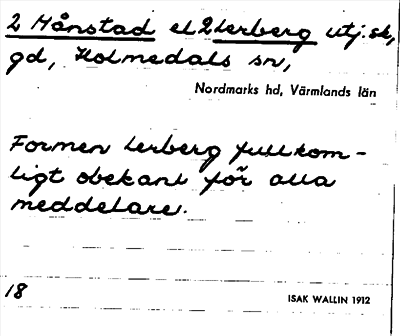 2 Hånstad el 2 Lerberg utj. sk,
gd, Holmedals sn,
Nordmarks hd, Värmlands län
Formen Lerberg fullkom-
ligt obekant för alla
meddelare.
18
ISAK WALLIN 1912